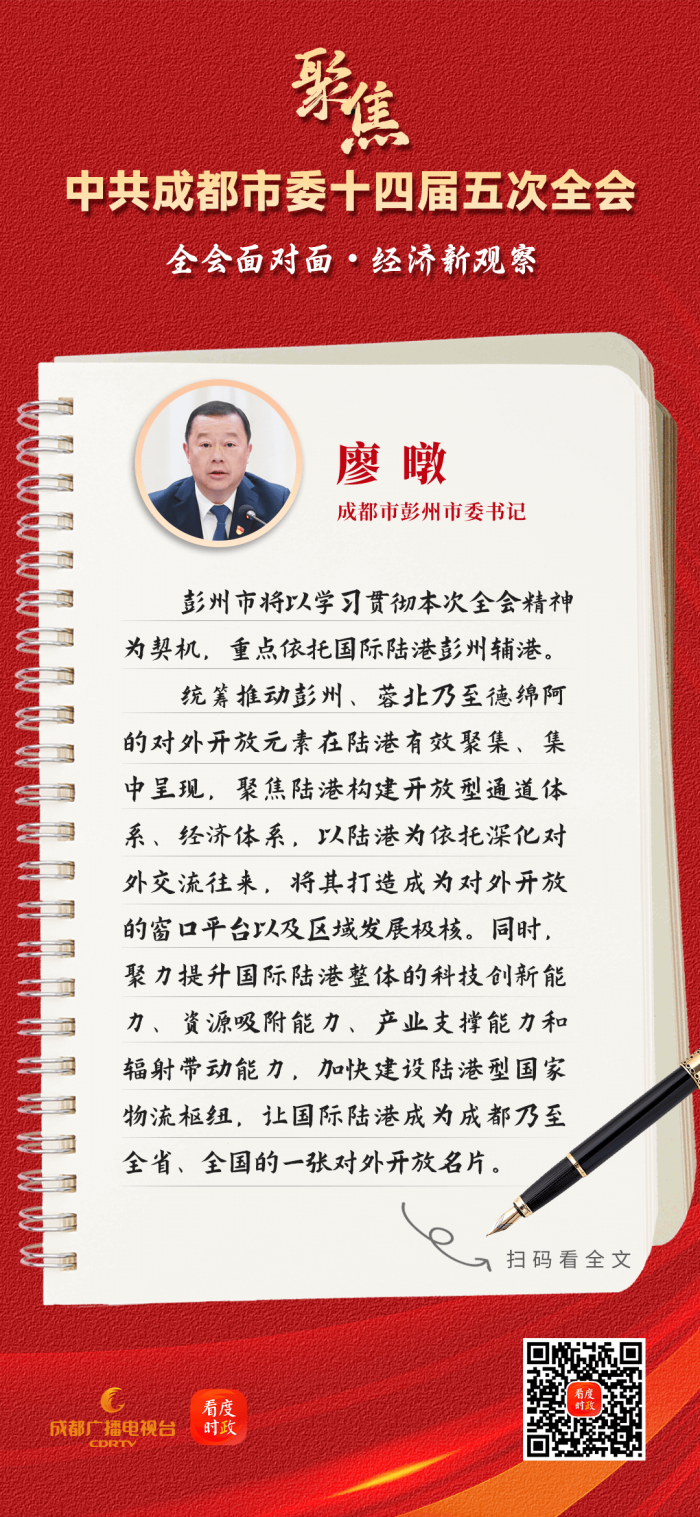 聚焦
中共成都市委十四届五次全会
全会面对面·经济新观察
廖暾
成都市彭州市委书记
彭州市将以学习贯彻本次全会精神
为契机，重点依托国际陆港彭州辅港。
统筹推动彭州、蓉北乃至德绵阿
的对外开放元素在陆港有效聚集、集
中呈现，聚焦陆港构建开放型通道体
系、经济体系，以陆港为依托深化对
外交流往来，将其打造成为对外开放
的窗口平台以及区域发展极核。同时，
聚力提升国际陆港整体的科技创新能
力、资源吸附能力、产业支撑能力和
辐射带动能力，加快建设陆港型国家
物流枢纽，让国际陆港成为成都乃至
全省、全国的一张对外开放名片。
扫码看全文
成都广播电视台
CDRTV
看度
时政
看度
时政